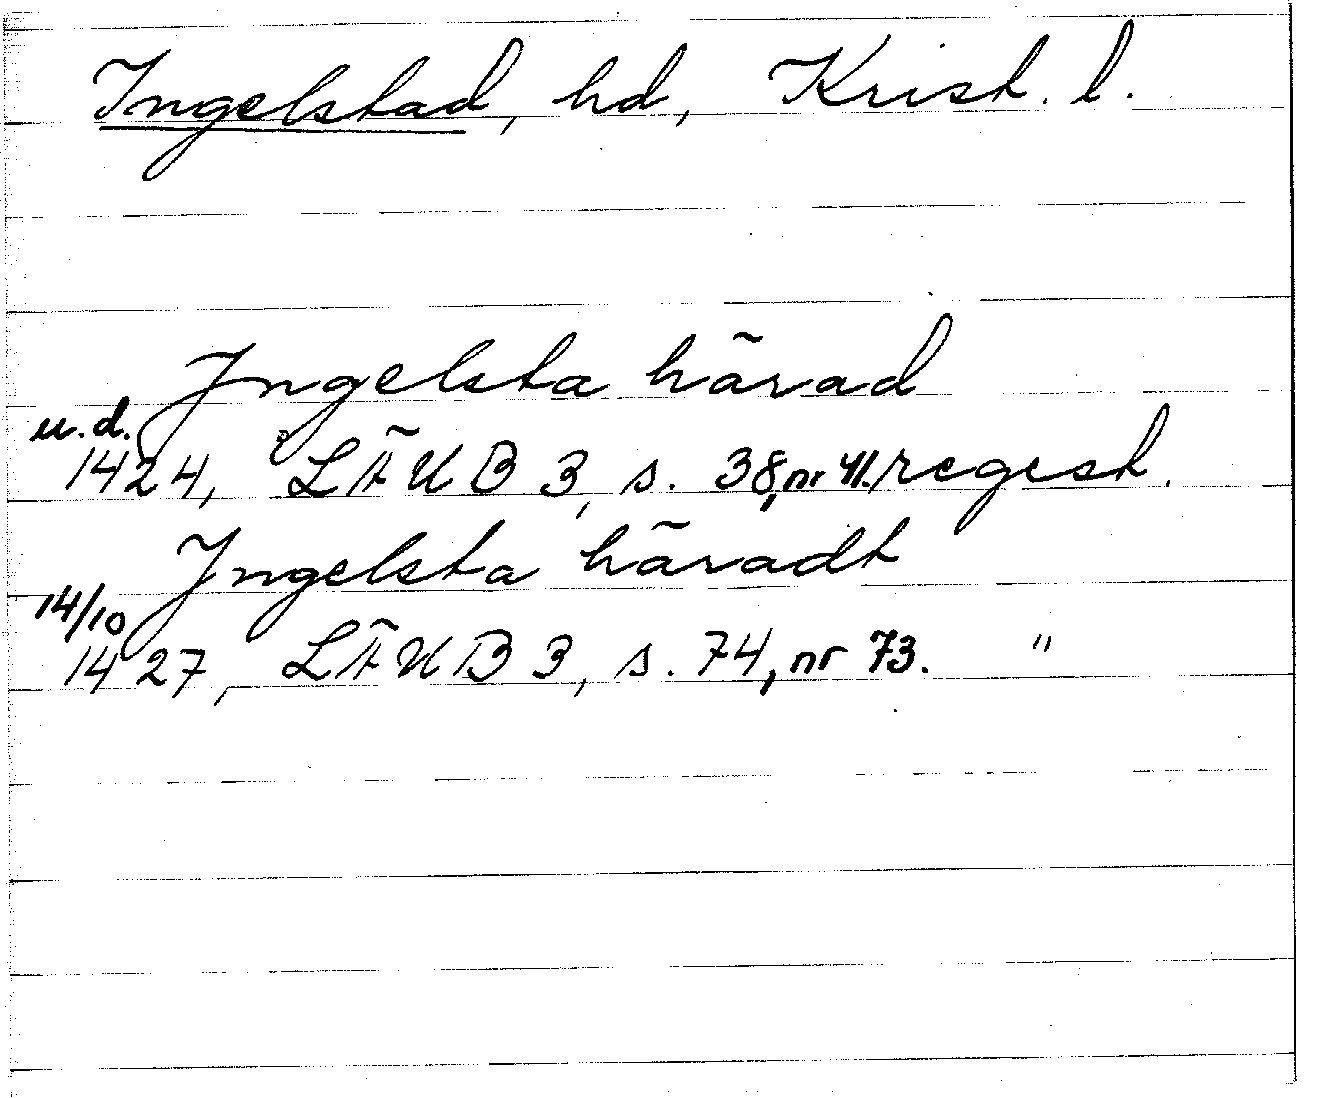 Ingelstad, hd, Krist. l.
Jngelsta härad
u.d.
1424, LÄUB 3, s. 38, nr 41. regest.
Jngelsta häradt
14/10
1427, LÄUB 3, s. 74, nr 73. "